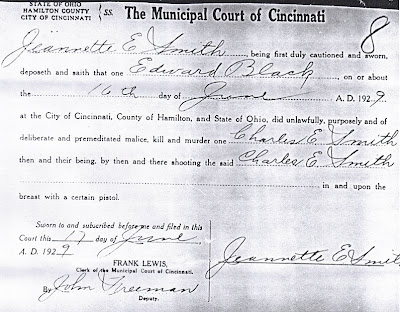 STATE OF OHIO
HAMILTON COUNTY
CITY OF CINCINNATI
ss. The Municipal Court of Cincinnati
8
Jeannette E. Smith, being first duly cautioned and sworn,
deposeth and saith that one Edward Black, on or about
the 16th day of June A. D. 1929
at the City of Cincinnati, County of Hamilton, and State of Ohio, did unlawfully, purposely and of
deliberate and premeditated malice, kill and murder one Charles E. Smith
then and their being, by then and there shooting the said Charles E. Smith
in and upon the
breast with a certain pistol.
Sworn to and subscribed before me and filed in this
Court this 17 day of June
A. D. 1929
FRANK LEWIS,
Clerk of the Municipal Court of Cincinnati.
By John Freeman
Deputy.
Jeannette E Smith